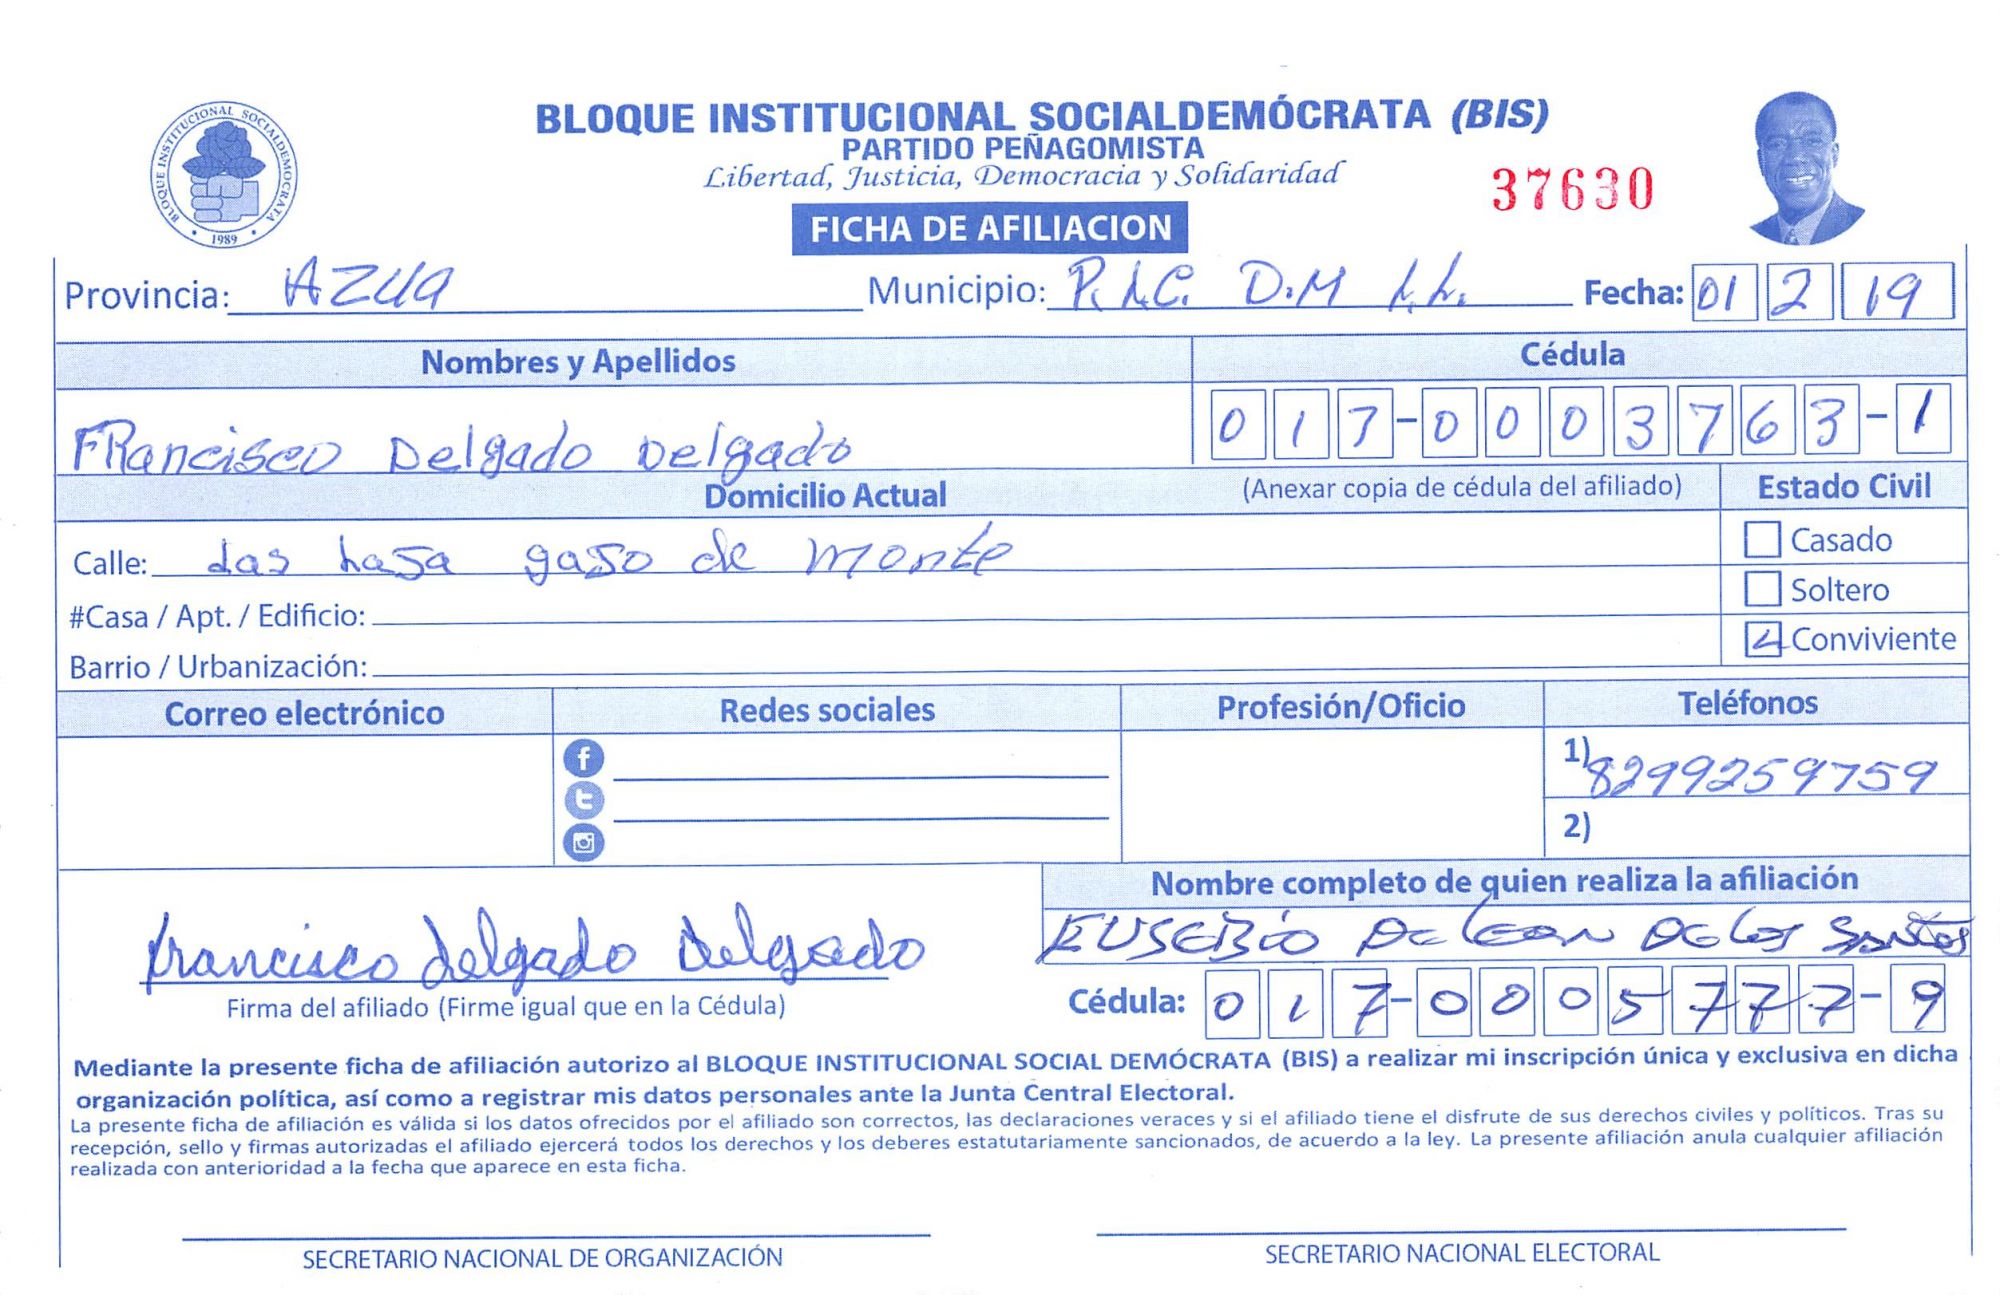 BLOQUE INSTITUCIONAL SOCIALDEMÓCRATA
1989
BLOQUE INSTITUCIONAL SOCIALDEMÓCRATA (BIS)
PARTIDO PEÑAGOMISTA
Libertad, Justicia, Democracia y Solidaridad
37630
FICHA DE AFILIACION
Provincia: AZUA Municipio: P.L.C. D.M L.L. Fecha: 01 2 19
Nombres y Apellidos Cédula
FRancisco Delgado Delgado 017-0003763-1
Domicilio Actual (Anexar copia de cédula del afiliado) Estado Civil
Calle: Las gaso de monte Casado
#Casa / Apt. / Edificio: Soltero
Barrio / Urbanización: Conviviente
Correo electrónico Redes sociales Profesión/Oficio Teléfonos
1) 8299259759
2)
Nombre completo de quien realiza la afiliación
Francisco Delgado Delgado EUSEBIO De Leon De Los Santos
Firma del afiliado (Firme igual que en la Cédula) Cédula: 017-0005777-9
Mediante la presente ficha de afiliación autorizo al BLOQUE INSTITUCIONAL SOCIAL DEMÓCRATA (BIS) a realizar mi inscripción única y exclusiva en dicha
organización política, así como a registrar mis datos personales ante la Junta Central Electoral.
La presente ficha de afiliación es válida si los datos ofrecidos por el afiliado son correctos, las declaraciones veraces y si el afiliado tiene el disfrute de sus derechos civiles y políticos. Tras su
recepción, sello y firmas autorizadas el afiliado ejercerá todos los derechos y los deberes estatutariamente sancionados, de acuerdo a la ley. La presente afiliación anula cualquier afiliación
realizada con anterioridad a la fecha que aparece en esta ficha.
SECRETARIO NACIONAL DE ORGANIZACIÓN SECRETARIO NACIONAL ELECTORAL